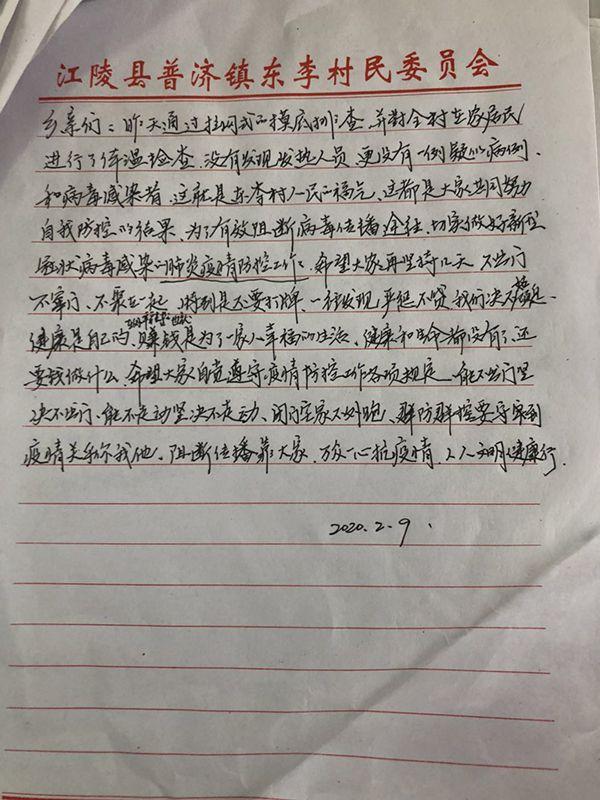 江陵县普济镇东李村民委员会
乡亲们：昨天通过拉网式的摸底排查，并对全村在家居民
进行了体温检查，没有发现发热人员，更没有一例疑似病例、
和病毒感染者，这就是东李村人民的福气，这都是大家共同努力
自我防控的结果，为了有效阻断病毒传播途径，切实做好新型
冠状病毒感染的肺炎疫情防控工作，希望大家再坚持几天，不出门
不串门、不聚在一起，特别是不要打牌，一经发现，严惩不贷，我们决不姑息。
健康是自己的，赚钱是为了一家人幸福的生活，健康和生命都没有了，还
要钱做什么，希望大家自觉遵守疫情防控工作各项规定，能不出门坚
决不出门，能不走动坚决不走动，闭门在家不外跑，群防群控要守牢到
疫情关系你我他，阻断传播靠大家，万众一心抗疫情，人人文明健康行。
2020.2.9.